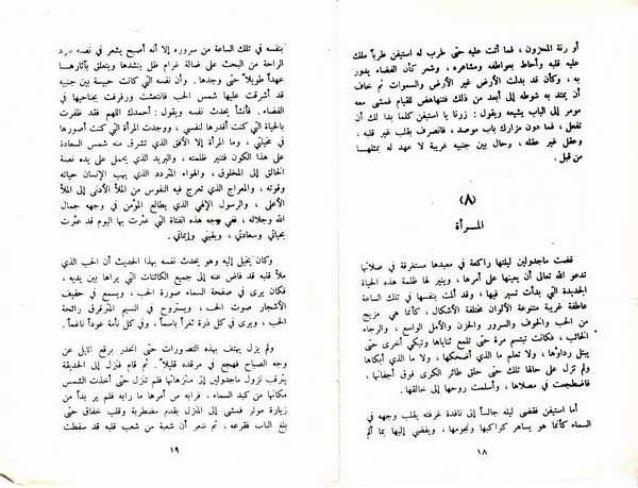 أو رنة المحزون ، فما أتت عليه حتى طرب له استيفن طرباً ملك
عليه قلبه وأحاط بعواطفه ومشاعره ، وشعر كأن الفضاء يدور
به ، وكأن قد بدلت الأرض غير الأرض والسموات ثم خاف
أن يمتد به شوطه إلى أبعد من ذلك فتناهض للقيام فمشى معه
مولر إلى الباب يشيعه ويقول : زرنا يا استيفن كلما بدا لك أن
تفعل ، فما دون مزارك باب موصد ، فانصرف بقلب غير قلبه ،
وعقل غير عقله ، وحال بين جنبيه غريبة لا عهد له بمثلها
من قبل .
(٨)
المرأة
قضت ماجدولين ليلتها راكعة في معبدها مستغرقة في صلاتها
تدعو الله تعالى أن يعينها على أمرها ، وينير لها ظلمة هذه الحياة
الجديدة التي بدأت تسير فيها ، وقد ألمت بنفسها في تلك الساعة
عاطفة غريبة متنوعة الألوان مختلفة الأشكال ، كأنما هي مزيج
من الحب والخوف والسرور والحزن والأمل الواسع ، والرجاء
الخائب ، فكانت تبتسم مرة حتى تلمع ثناياها وتبكي أخرى حتى
يبتل رداؤها ، ولا تعلم ما الذي أضحكها ، ولا ما الذي أبكاها
ولم تزل على حالها تلك حتى حلق طائر الكرى فوق أجفانها ،
فاضطجعت في مصلاها ، وأسلمت روحها إلى خالقها .
أما استيفن فقضى ليله جالساً إلى نافذة غرفته يقلب وجهه في
السماء كأنما هو يساهر كواكبها ونجومها ، ويفضي إليها بما ألم
١٨
بنفسه في تلك الساعة من سروره إلا أنه أصبح يشعر في نفسه
الراحة من البحث على ضالة غرام ظل ينشدها ويتعلق بآثارها
عهداً طويلاً حتى وجدها . وأن نفسه التي كانت حبيسة بين جنبيه
قد أشرقت عليها شمس الحب فانتعشت ورفرفت بجناحيها في
الفضاء . فأنشأ يحدث نفسه ويقول : أحمدك اللهم فقد ظفرت
بالحياة التي كنت أقدرها لنفسي ، ووجدت المرأة التي كنت أصورها
في مخيلتي ، وما المرأة إلا الأفق الذي تشرق منه شمس السعادة
على هذا الكون فتنير ظلمته ، والبريد الذي يحمل على يده نعمة
الخالق إلى المخلوق ، والهواء المتردد الذي يهب الإنسان حياته
وقوته ، والمعراج الذي تعرج فيه النفوس من الملأ الأدنى إلى الملأ
الأعلى ، والرسول الإلهي الذي يطالع المؤمن في وجهه جمال
الله وجلاله ، ففي وجه هذه الفتاة التي عثرت بها اليوم قد عثرت
بحياتي وسعادتي ، ويقيني وإيماني .
وكان يخيل إليه وهو يحدث نفسه بهذا الحديث أن الحب الذي
ملأ قلبه قد فاض عنه إلى جميع الكائنات التي يراها بين يديه ،
فكان يرى في صفحة السماء صورة الحب ، ويسمع في حفيف
الأشجار صوت الحب ، ويستروح في النسيم المترقرق رائحة
الحب ، ويرى في كل ذرة ثغراً باسماً ، وفي كل نأمة عوداً ناغماً .
ولم يزل يهتف بهذه التصورات حتى انحدر برقع الليل عن
وجه الصباح فهجع في مرقده قليلاً . ثم قام فنزل إلى الحديقة
يترقب نزول ماجدولين إلى متنزهاتها فلم تنزل حتى أخذت الشمس
مكانها من كبد السماء . فرابه من أمرها ما رابه فلم ير بداً من
زيارة مولر فمشى إلى المنزل بقدم مضطربة وقلب خفاق حتى
بلغ الباب فقرعه . ثم شعر أن شعبة من شعب قلبه قد سقطت
١٩